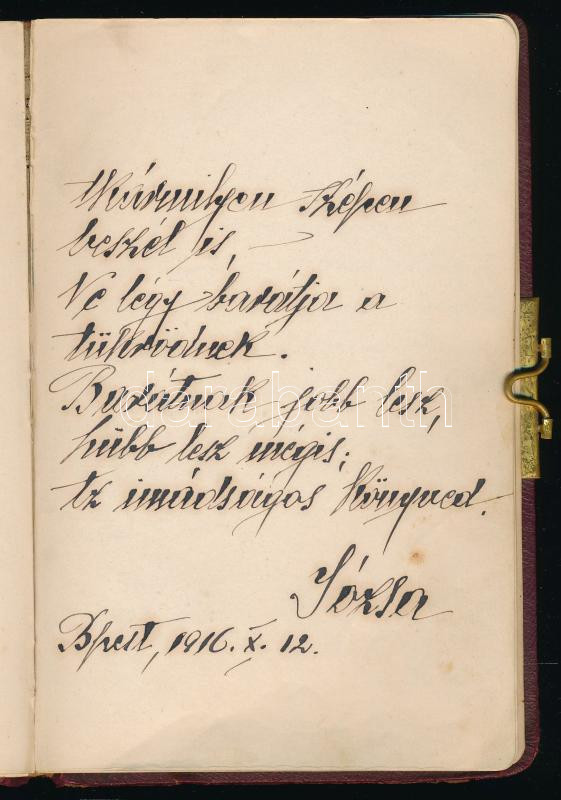 Akármilyen szépen
beszél is –
Ne légy barátja a
tükrödnek.
Barátnak jobb lesz,
hübb lesz mégis;
Az imádságos könyved.
Józsa
Bpest, 1916. X. 12.
darabanth.com